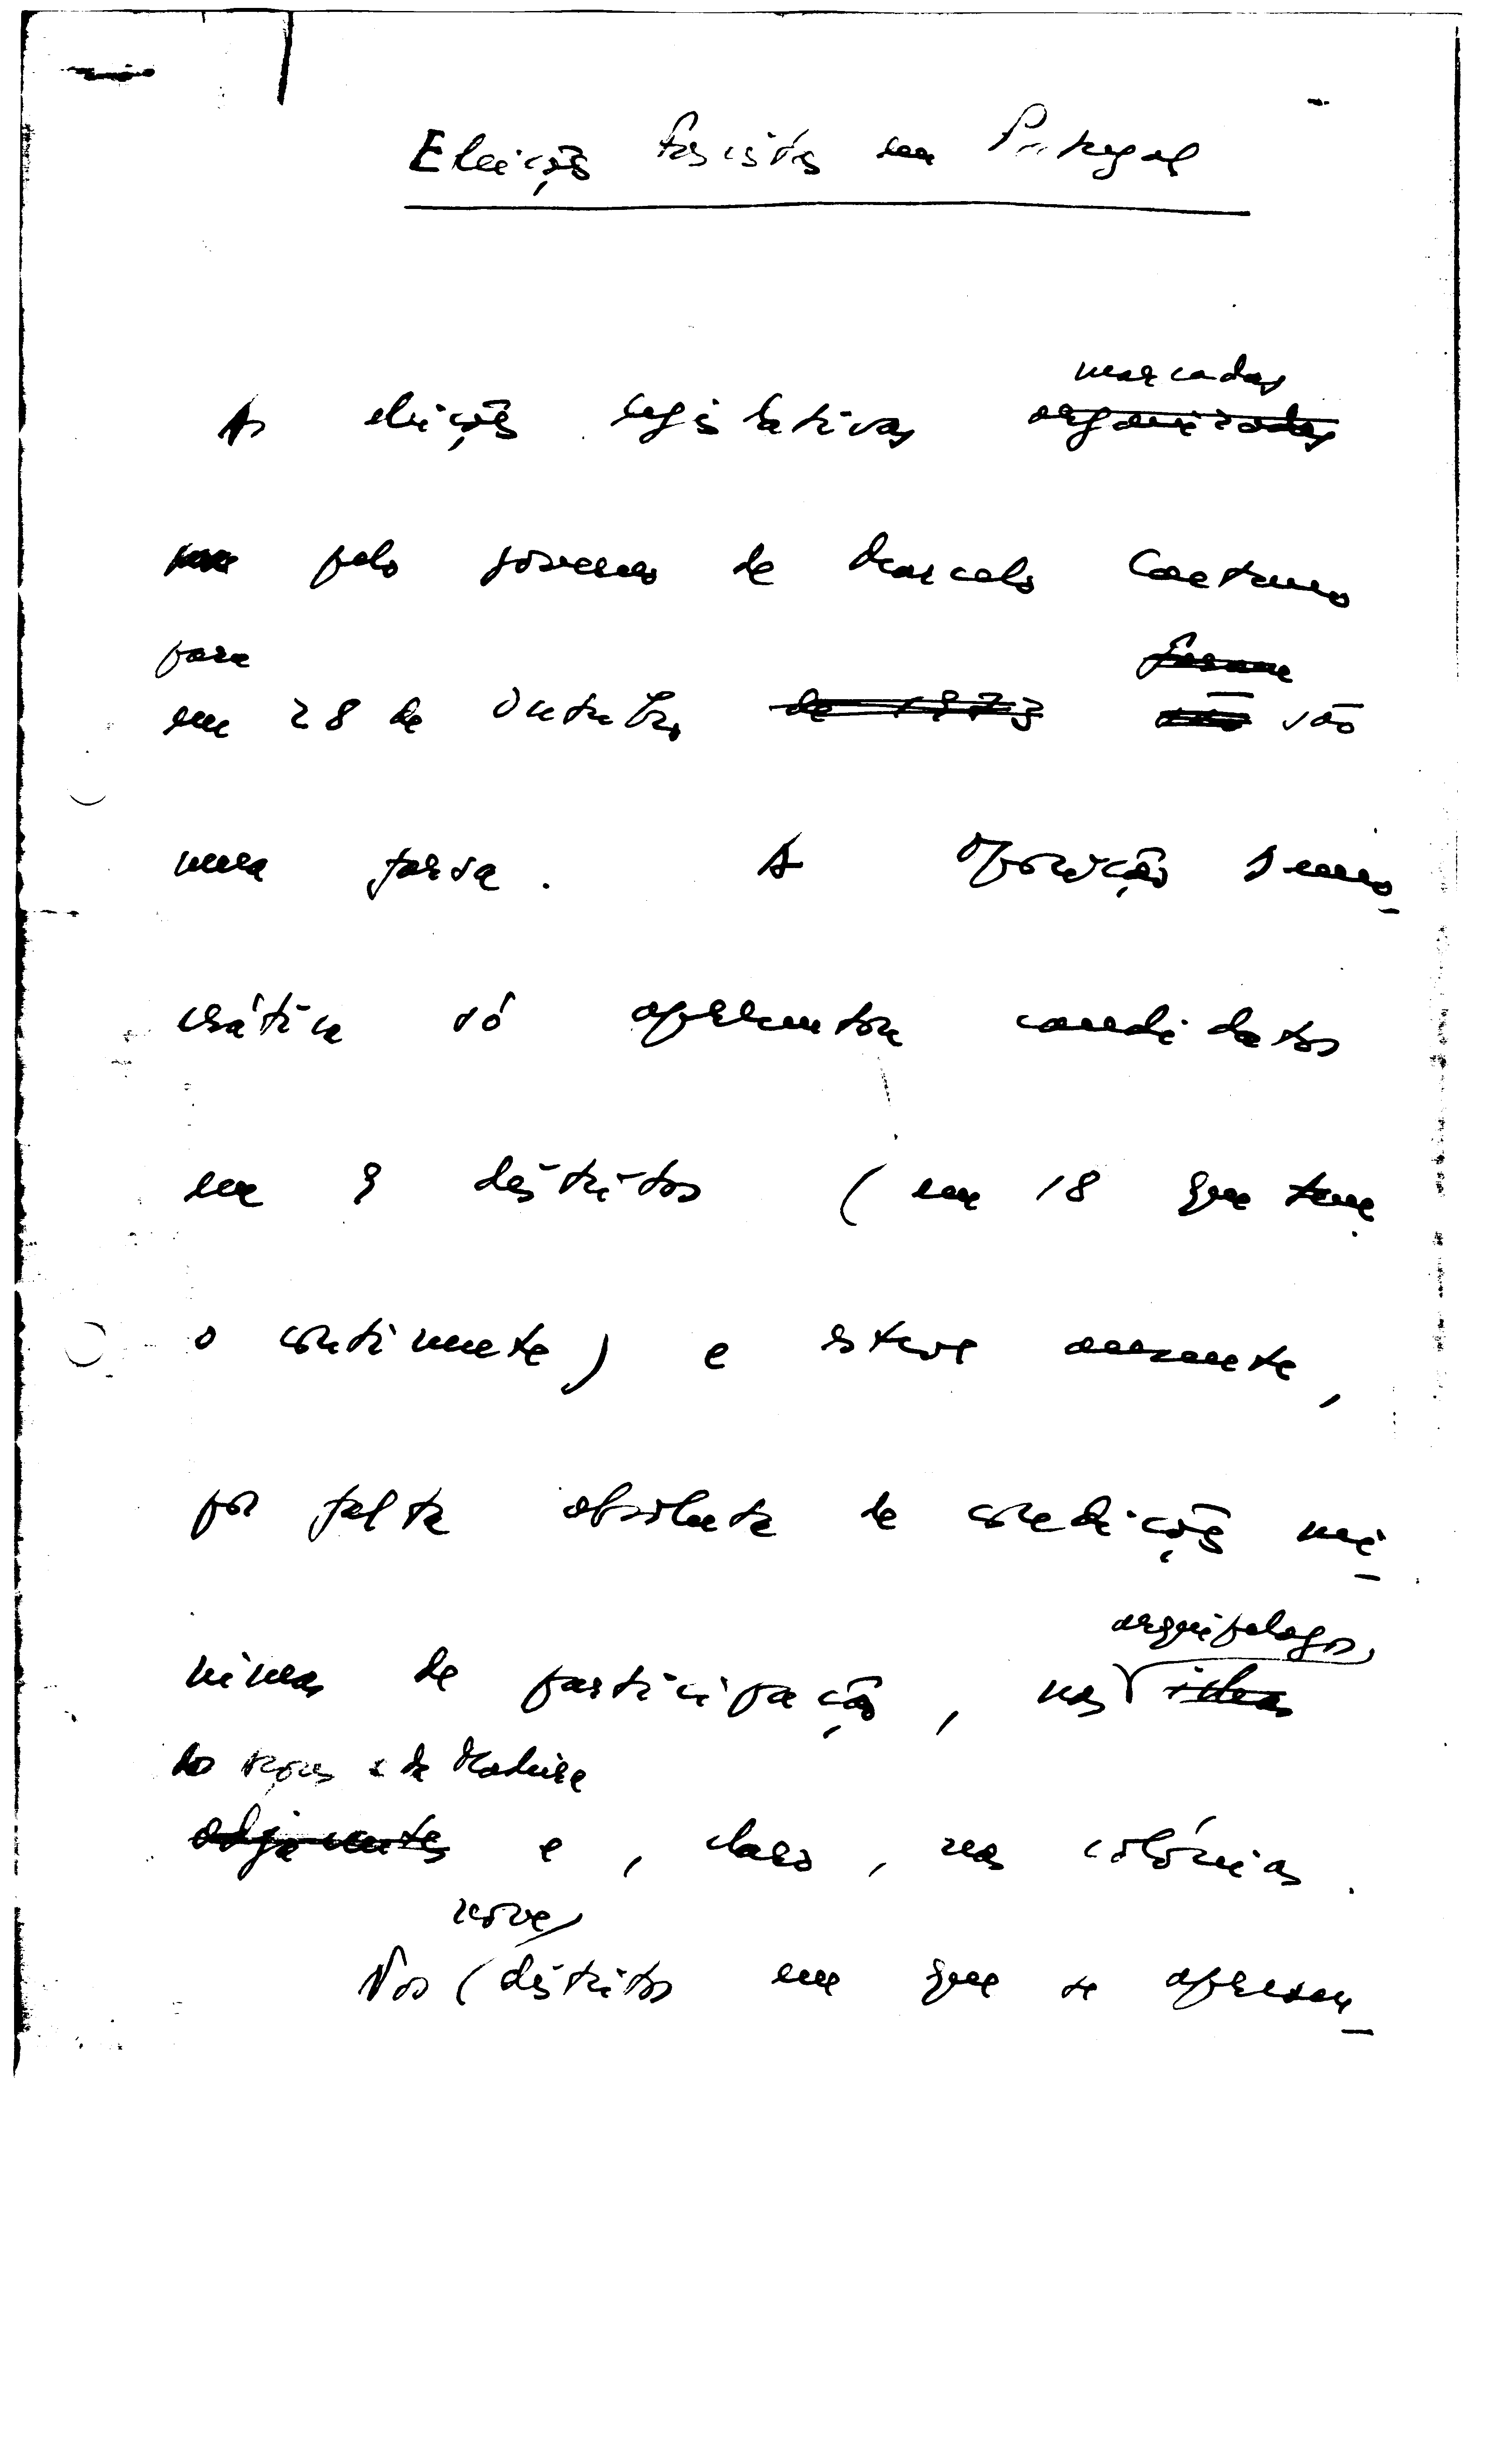 Eleições fascistas em Portugal
marcadas
As eleições legislativas organizadas
pelo governo de Marcelo Caetano
para
em 28 de Outubro de 1973 são
uma farsa. A oposição demo-
crática só apresentou candidatos
em 9 distritos (em 18 que tem
o continente) e esteve ausente,
por falta absoluta de condições mí-
nimas de participação, nos ilhas
arquipélagos
dos Açores e da Madeira
adjacentes e, claro, nas colónias.
nove
Nos distritos em que se apresen-